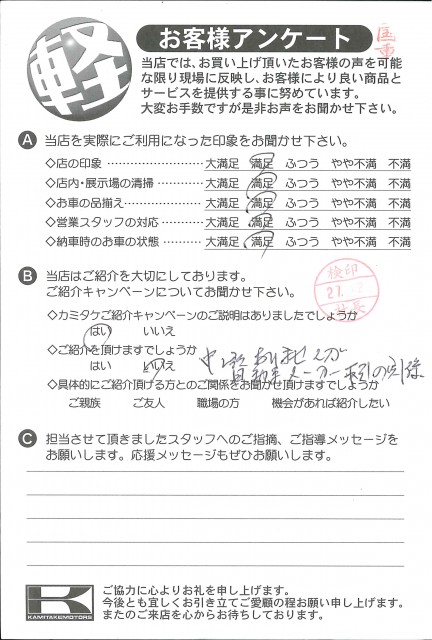 軽
お客様アンケート
当店では、お買い上げ頂いたお客様の声を可能
な限り現場に反映し、お客様により良い商品と
サービスを提供する事に努めています。
大変お手数ですが是非お声をお聞かせ下さい。
A 当店を実際にご利用になった印象をお聞かせ下さい。
◇店の印象 大満足 満足 ふつう やや不満 不満
◇店内・展示場の清掃 大満足 満足 ふつう やや不満 不満
◇お車の品揃え 大満足 満足 ふつう やや不満 不満
◇営業スタッフの対応 大満足 満足 ふつう やや不満 不満
◇納車時のお車の状態 大満足 満足 ふつう やや不満 不満
B 当店はご紹介を大切にしてあります。
ご紹介キャンペーンについてお聞かせ下さい。
検印
27.
社長
◇カミタケご紹介キャンペーンのご説明はありましたでしょうか
はい いいえ
◇ご紹介を頂けますでしょうか
はい いいえ
申し訳ありませんが
自動車メーカー取引の関係
◇具体的にご紹介頂ける方とのご関係をお聞かせ頂けますでしょうか
ご親族 ご友人 職場の方 機会があれば紹介したい
C 担当させて頂きましたスタッフへのご指摘、ご指導メッセージを
お願いします。応援メッセージもぜひお願いします。
K
KAMITAKEMOTORS
ご協力に心よりお礼を申し上げます。
今後とも宜しくお引き立てご愛顧の程お願い申し上げます。
またのご来店を心からお待ちしております。